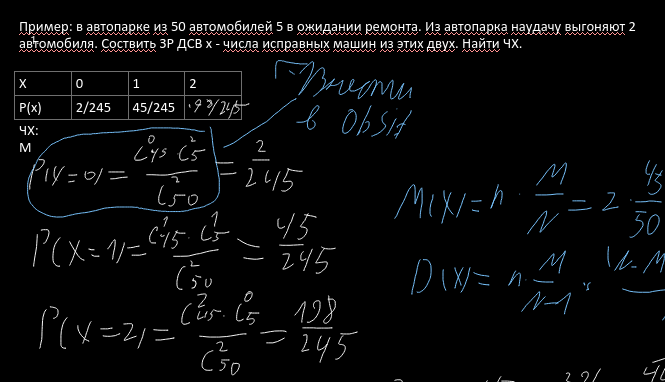 Пример: в автопарке из 50 автомобилей 5 в ожидании ремонта. Из автопарка наудачу выгоняют 2
автомобиля. Соствить ЗР ДСВ x - числа исправных машин из этих двух. Найти ЧХ.
X 0 1 2
P(x) 2/245 45/245 198/245
ЧХ:
М
Внести
в Obsid
P(X=0)= C⁰₄₅ C²₅ / C²₅₀ = 2/245
P(X=1)= C¹₄₅ · C¹₅ / C²₅₀ = 45/245
P(X=2)= C²₄₅ · C⁰₅ / C²₅₀ = 198/245
M(X)= n · M/N = 2 · 45/50
D(X)= n · M/N-1 · (N-M